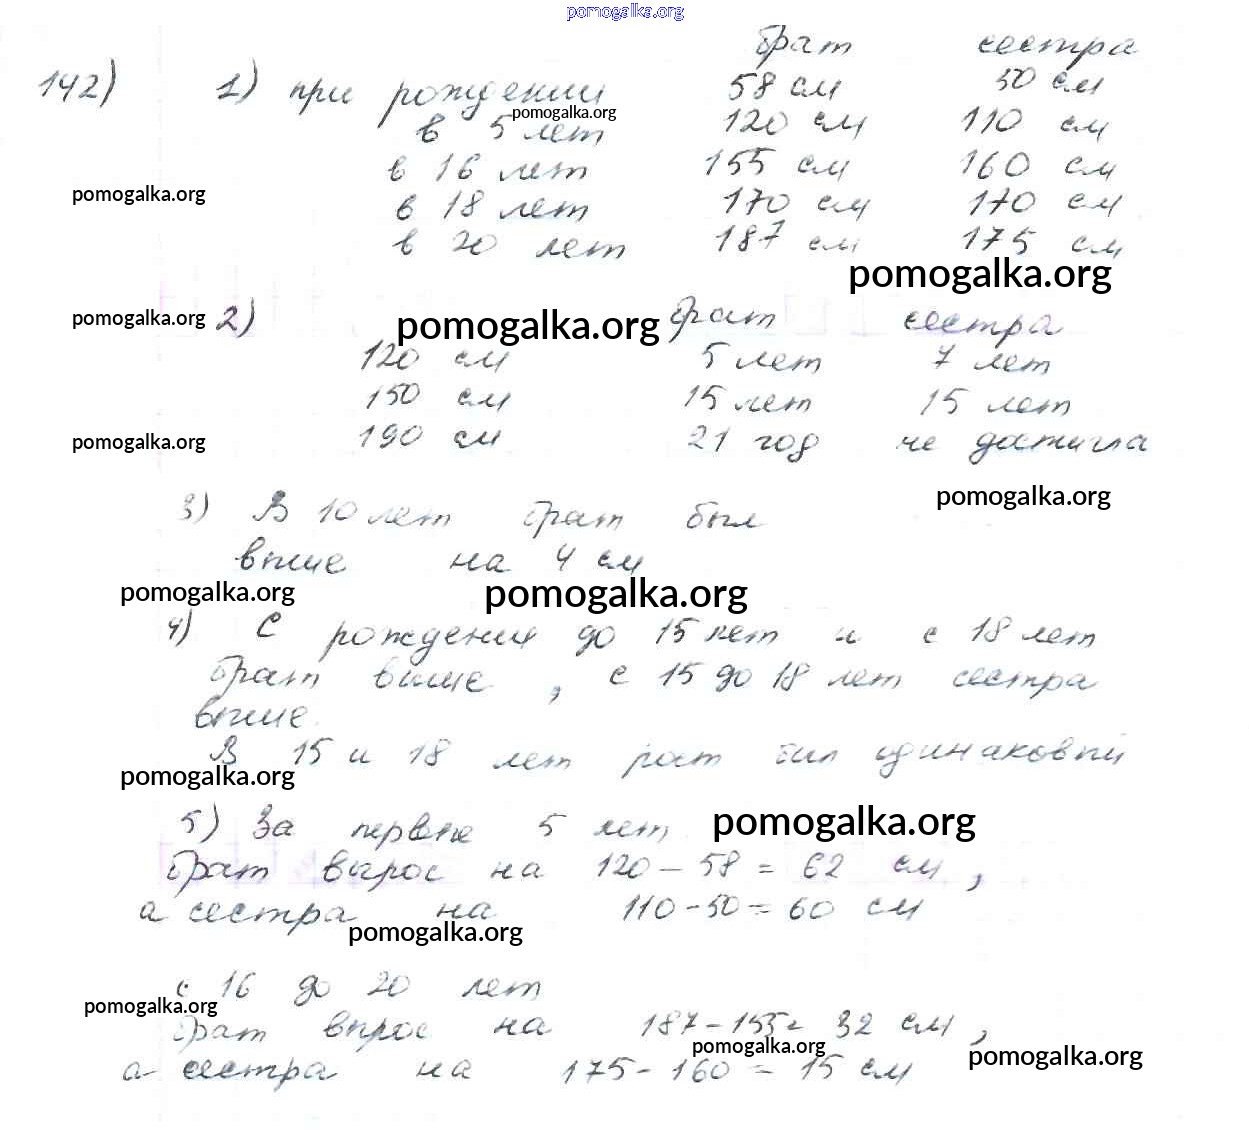 pomogalka.org
брат сестра
142) 1) при рождении 58 см 50 см
pomogalka.org
в 5 лет 120 см 110 см
в 16 лет 155 см 160 см
pomogalka.org
в 18 лет 170 см 170 см
в 20 лет 187 см 175 см
pomogalka.org
pomogalka.org 2) pomogalka.org брат сестра
120 см 5 лет 7 лет
150 см 15 лет 15 лет
pomogalka.org 190 см 21 год не достигла
pomogalka.org
3) В 10 лет брат был
выше на 4 см
pomogalka.org pomogalka.org
4) С рождения до 15 лет и с 18 лет
брат выше, с 15 до 18 лет сестра
выше.
В 15 и 18 лет рост был одинаковый
pomogalka.org
5) За первые 5 лет pomogalka.org
брат вырос на 120 - 58 = 62 см,
а сестра на 110 - 50 = 60 см
pomogalka.org
с 16 до 20 лет
pomogalka.org
брат вырос на 187 - 155 = 32 см,
pomogalka.org pomogalka.org
а сестра на 175 - 160 = 15 см